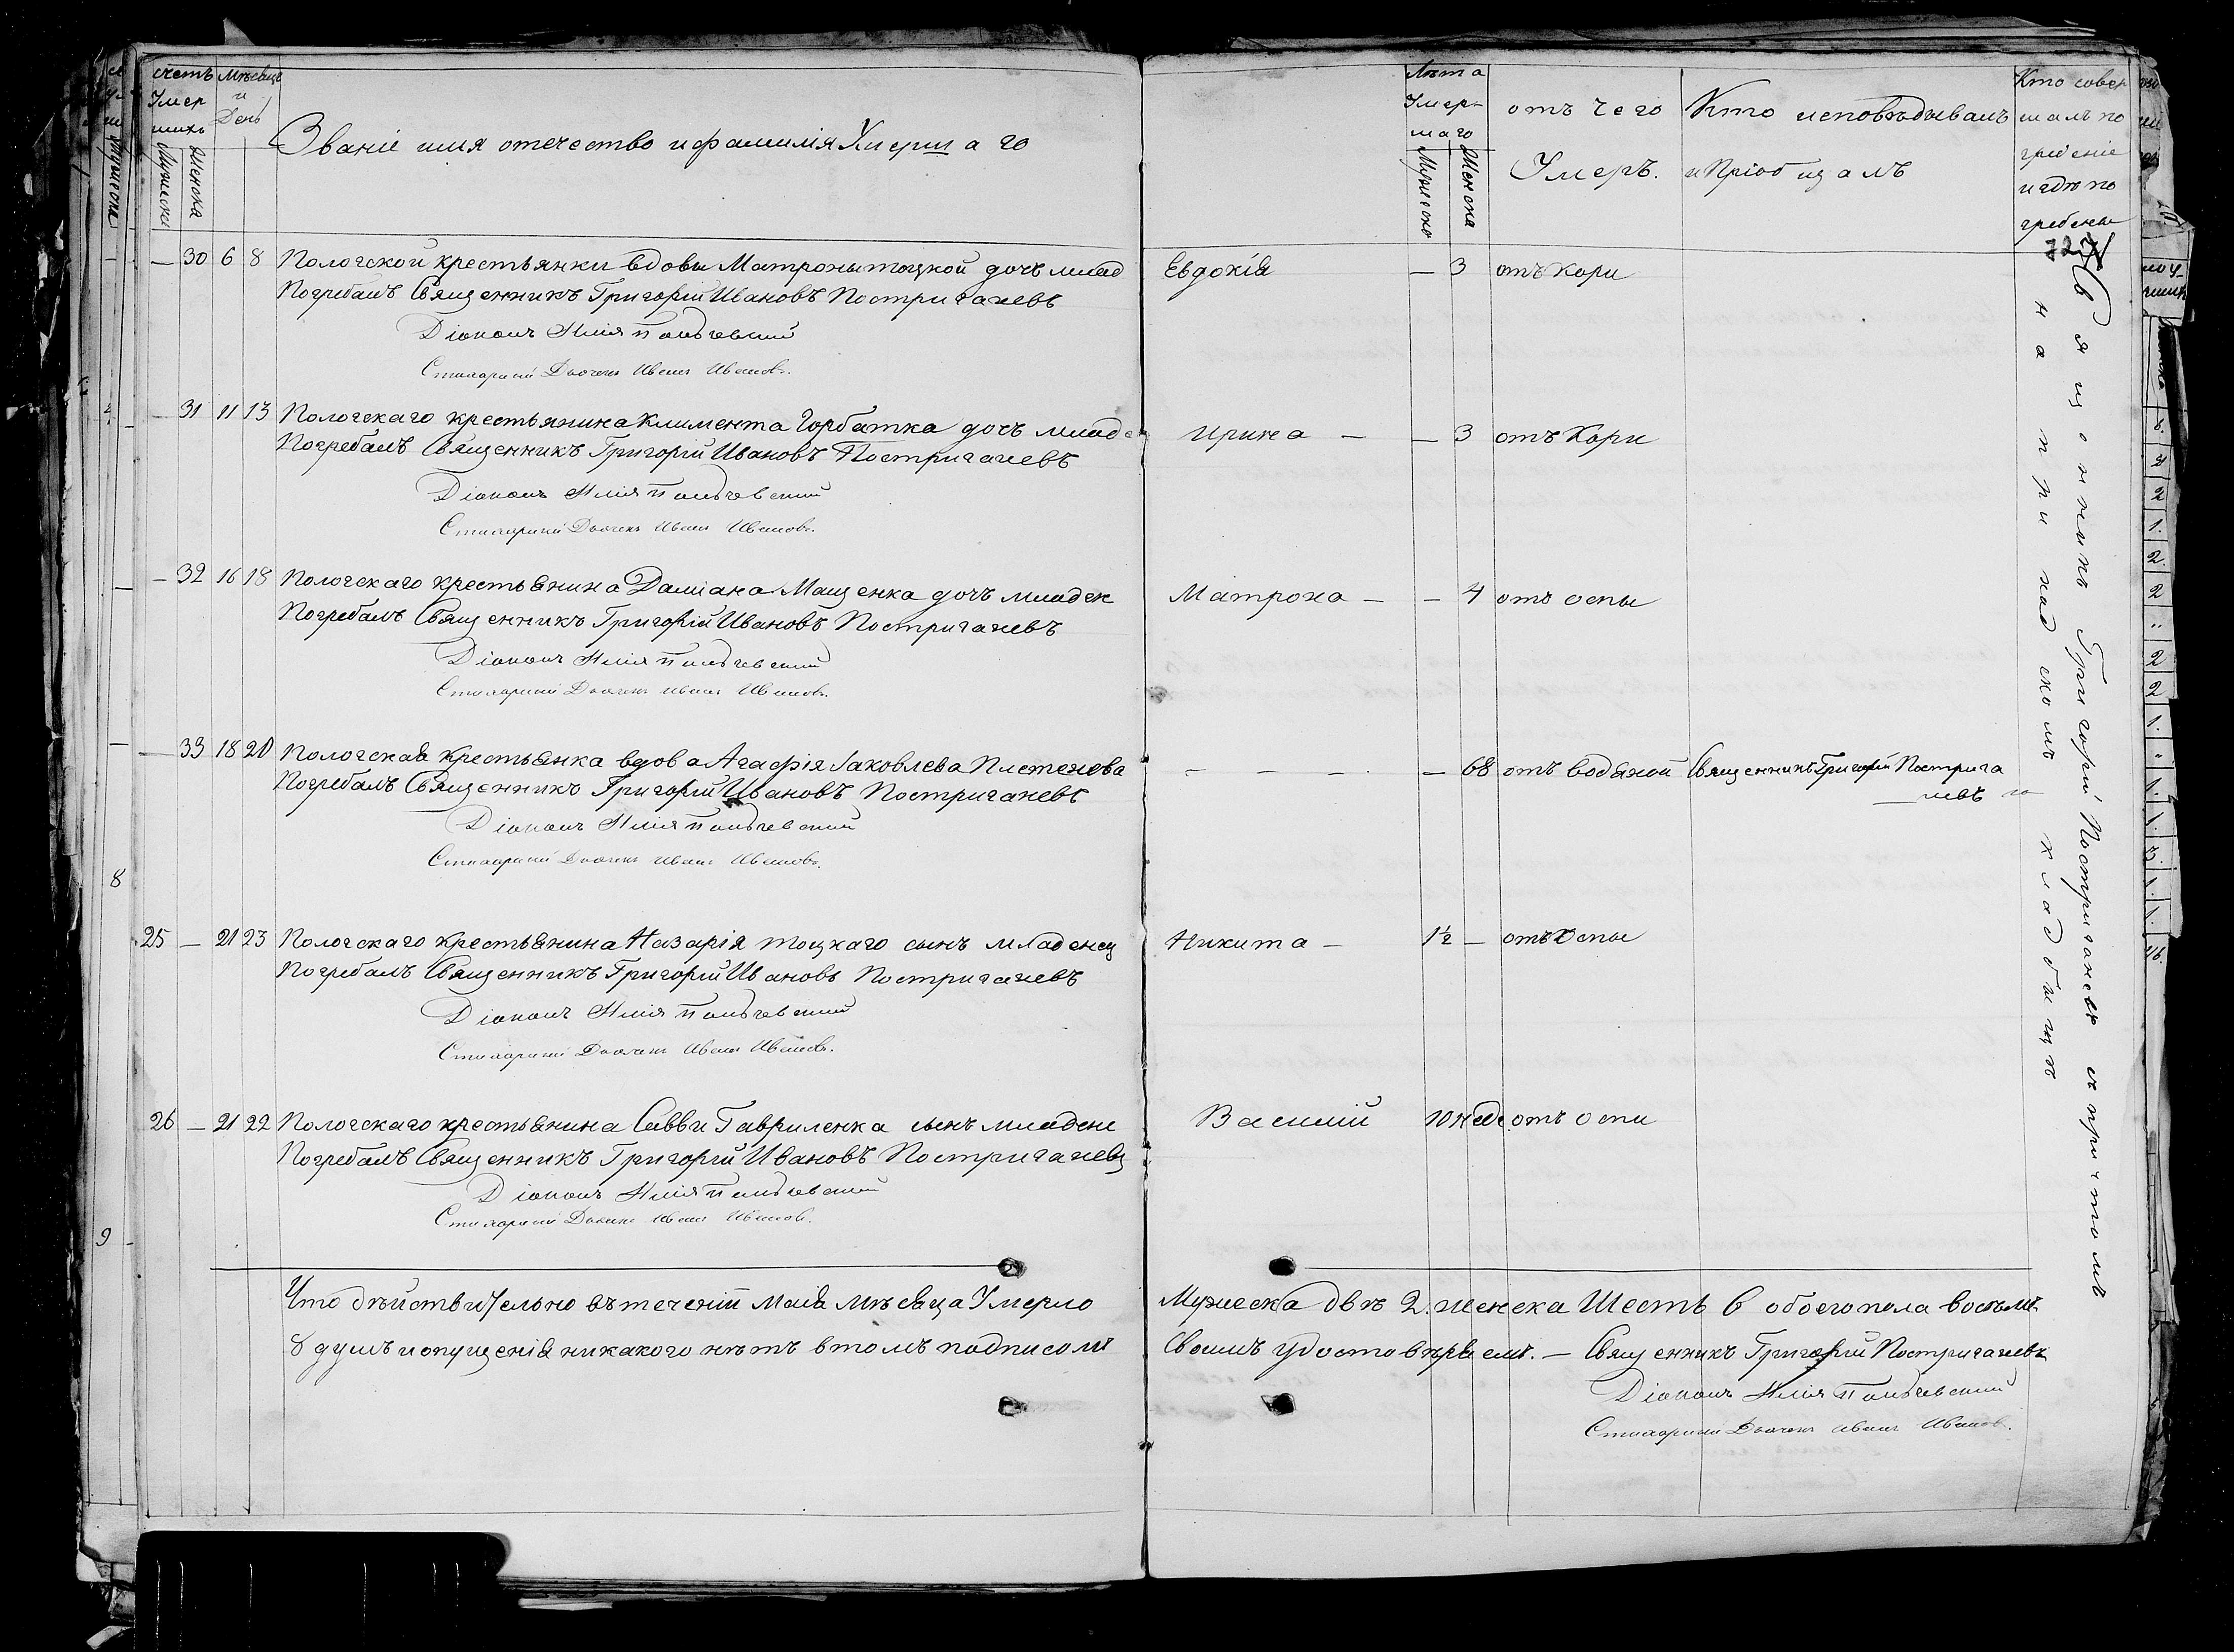 счетъ
Умер
шихъ
Мужеска
Женска
Мѣсяцъ
и
День
Званіе имя отечество и фамилія Умершаго
Лѣта
Умер-
шаго
Мужеска
Женска
отъ чего
Умеръ.
Кто исповѣдывалъ
и Пріобщалъ
Кто совер
шалъ по
гребеніе
и гдѣ по
гребены
— 30 6 8 Пологской крестьянки вдовы Матроны тоцкой дочь млад Евдокія — 3 отъ кори
Погребалъ Священникъ Григорій Ивановъ Постригачевъ
Діаконъ Илія
Стихарний Дьячекъ Иванъ Ивановъ.
— 31 11 13 Пологскаго крестьянина Климента Горбатка дочь млад Ирина — — 3 отъ Кори
Погребалъ Священникъ Григорій Ивановъ Постригачевъ
Діаконъ Илія
Стихарний Дьячекъ Иванъ Ивановъ.
— 32 16 18 Пологскаго крестьянина Даміана Мащенка дочь младен Матрона — — 4 отъ оспы
Погребалъ Священникъ Григорій Ивановъ Постригачевъ
Діаконъ Илія
Стихарний Дьячекъ Иванъ Ивановъ.
— 33 18 20 Пологская крестьянка вдова Агафія Іаковлева Плетенева — — — — 68 отъ водяной Священникъ Григорій Постригачевъ
Погребалъ Священникъ Григорій Ивановъ Постригачевъ
Діаконъ Илія
Стихарний Дьячекъ Иванъ Ивановъ.
25 — 21 23 Пологскаго крестьянина Назарія тоцкаго сынъ младенец Никита — 1½ — отъ Оспы
Погребалъ Священникъ Григорій Ивановъ Постригачевъ
Діаконъ Илія
Стихарний Дьячекъ Иванъ Ивановъ.
26 — 21 22 Пологскаго крестьянина Саввы Гавриленка сынъ младене Василій 10 нед. отъ оспи
Погребалъ Священникъ Григорій Ивановъ Постригачевъ
Діаконъ Илія
Стихарний Дьячекъ Иванъ Ивановъ.
Священникъ Григорій Постригачевъ съ причтомъ
на приходскомъ кладбищѣ
Что дѣйствительно въ теченіи Маія мѣсяца Умерло Мужеска двѣ 2. женска Шесть 6 обоего пола восьмъ
8 душъ и опущенія никакого нѣтъ в томъ подписомъ Своимъ удостовѣряемъ. — Священникъ Григорій Постригачевъ
Діаконъ Илія
Стихарний Дьячекъ Иванъ Ивановъ.